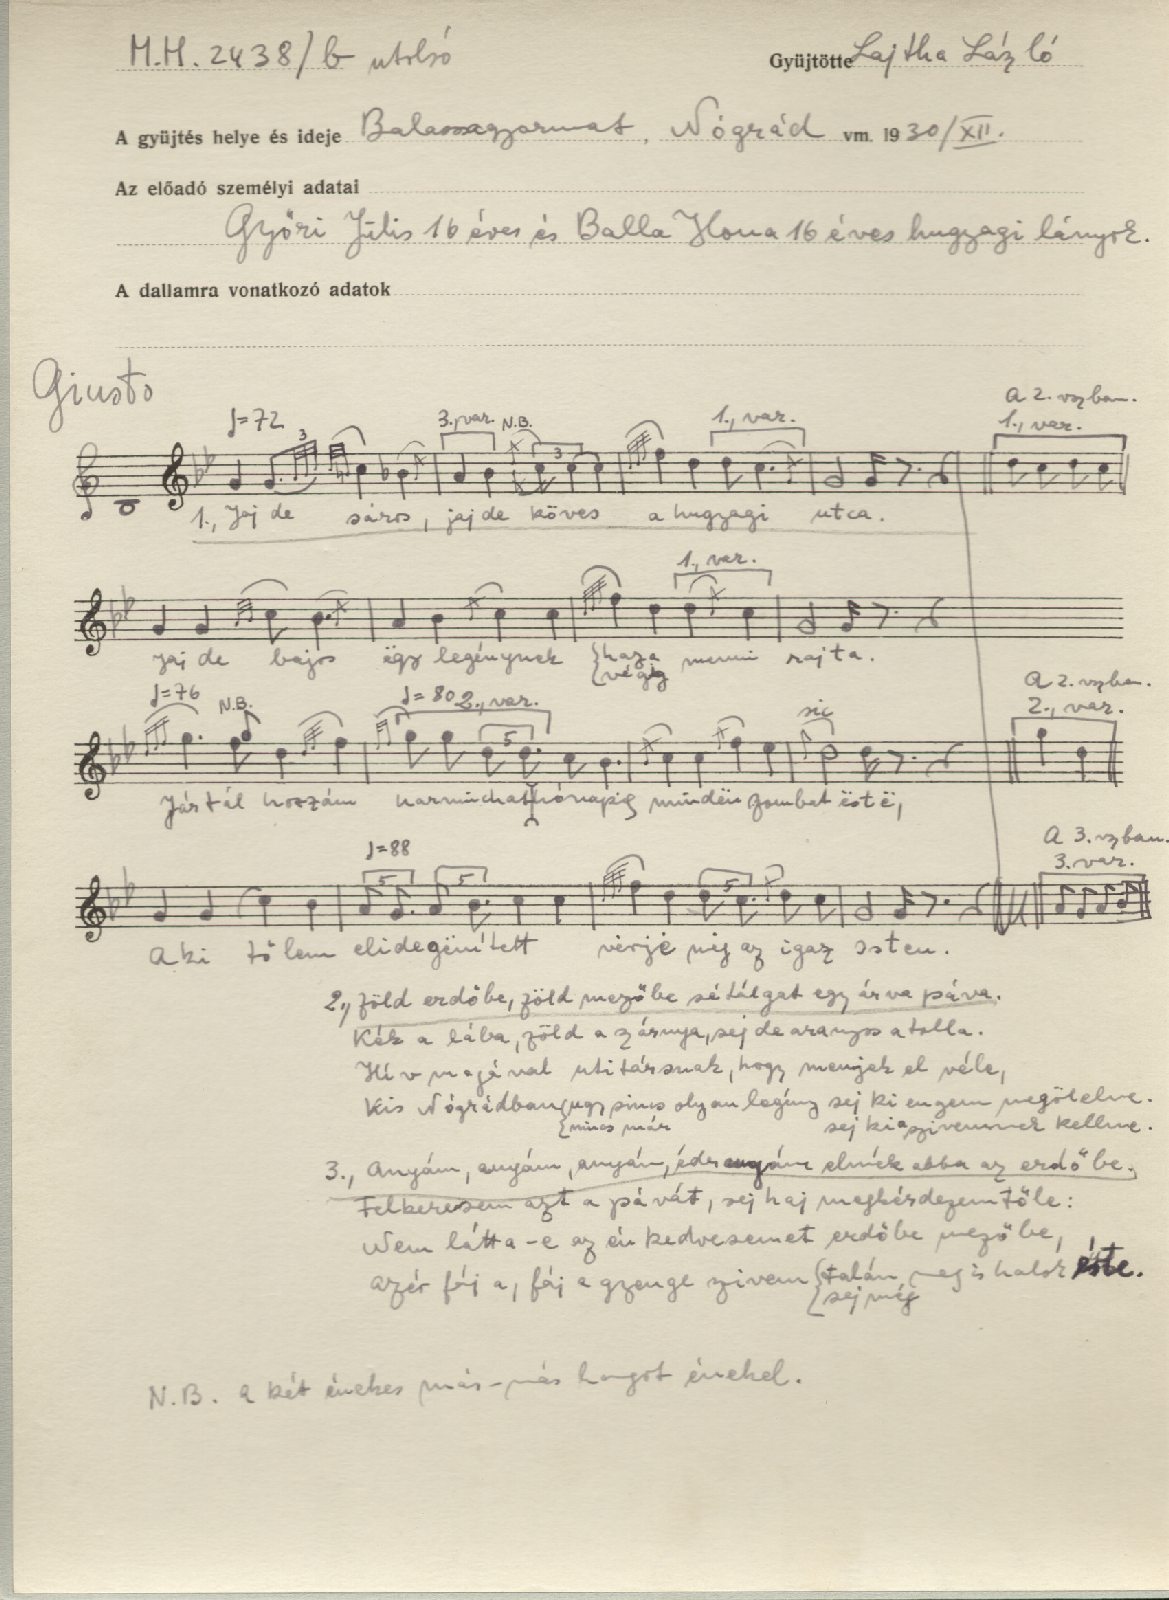 M.H. 2438/b utolsó Gyüjtötte Lajtha László
A gyüjtés helye és ideje Balassagyarmat, Nógrád vm. 1930/XII.
Az előadó személyi adatai
Győri Julis 16 éves és Balla Ilona 16 éves hugyagi lányok.
A dallamra vonatkozó adatok
Giusto
A 2. vszban.
♩=72 3 3., var. N.B. 3 1., var. 1., var.
1., Jaj de sáros, jaj de köves a hugyagi utca.
1., var.
Jaj de bajos ëgy legénynek {haza menni rajta.
{végig
A 2. vszban.
♩=76 N.B. ♩=80 2., var. 5 sic 2., var.
Jártál hozzám harminchathónapig mindën zombat ëstë,
A 3. vszban.
♩=88 3. var.
5 5 5
Aki tőlem elidegënített vérje mëg az igaz Isten.
2., Zöld erdőbe, zöld mezőbe sétálgat egy árva páva.
Kék a lába, zöld a szárnya, sej de aranyos a tolla.
Hív magával utitársnak, hogy menjek el véle,
Kis Nógrádban {ugy sincs olyan legény sej ki engem megölelne.
{nincs már sej ki a szivemnek kellne.
3., Anyám, anyám, anyám, édesanyám elmék abba az erdőbe.
Felkeresem azt a pávát, sej haj megkérdezem tőle:
Nem látta-e az én kedvesemet erdőbe mezőbe,
azér fáj a, fáj a gyenge szivem {talán meg is halok éste.
{sej még
N.B. a két énekes más-más hangot énekel.